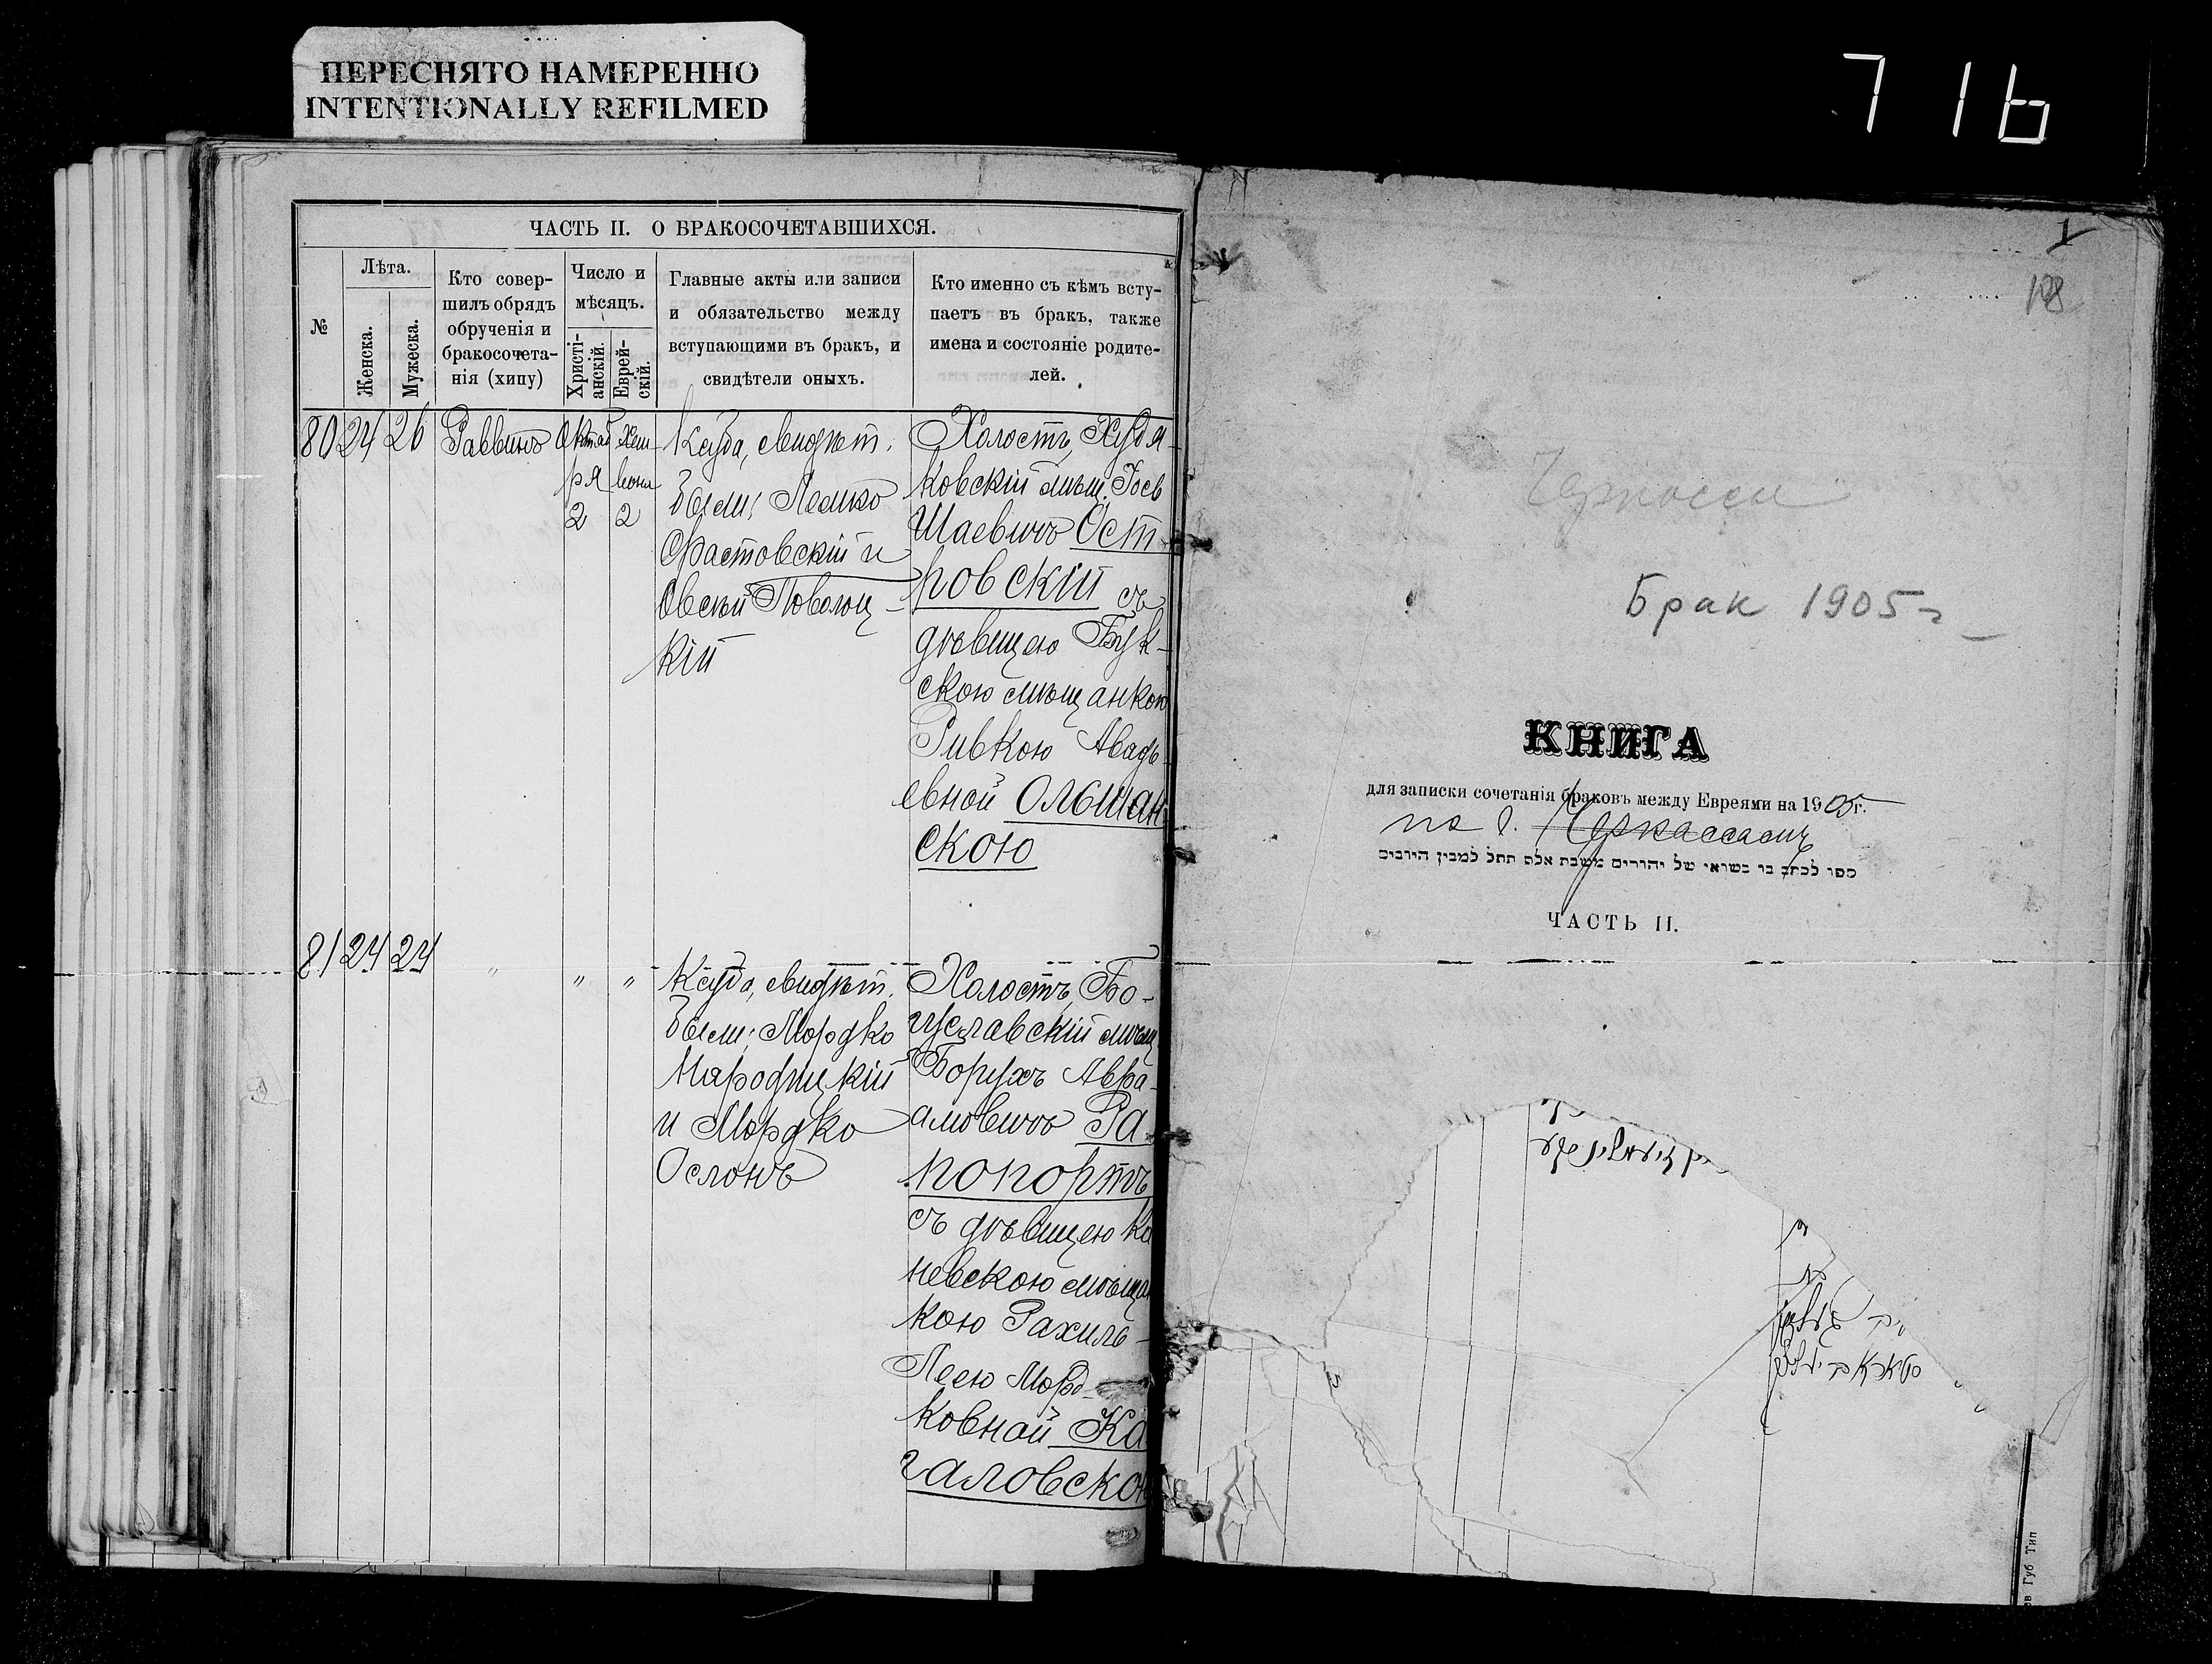 ПЕРЕСНЯТО НАМЕРЕННО
INTENTIONALLY REFILMED
716
ЧАСТЬ II. О БРАКОСОЧЕТАВШИХСЯ.
№
Лѣта.
Женска.
Мужеска.
Кто совер-
шилъ обрядъ
обрученія и
бракосочета-
нія (хипу)
Число и
мѣсяцъ.
Христі-
анскій.
Еврей-
скій.
Главные акты или записи
и обязательство между
вступающими въ бракъ, и
свидѣтели оныхъ.
Кто именно съ кѣмъ всту-
паетъ въ бракъ, также
имена и состояніе родите-
лей.
80 24 26 Раввинъ
Октяб
ря
2
Хеш
вона
2
Ксуба, свидѣт.
были; Лемко
Фастовскій и
Овсей Поволоц-
кій
Холостъ, Худя-
ковскій мѣщ. Іосъ
Шаевичъ Ост-
ровскій съ
дѣвицею Бук-
скою мѣщанкою
Ривкою Авадь-
евной Ольшан-
скою
81 24 24 " " "
Ксуба, свидѣт.
были; Мордко
Народицкій
и Мордко
Ослонъ
Холостъ, Бо-
гуславскій мѣщ
Борухъ Авра-
амовичъ Ра-
попортъ
съ дѣвицею Ка
невскою мѣщан
кою Рахиль-
Леею Морд-
ковной Ка-
галовскою
1
Черкассы
Брак 1905 г
КНИГА
для записки сочетанія браковъ между Евреями на 1905 г.
по г. Черкассамъ
ЧАСТЬ II.
Губ Тип